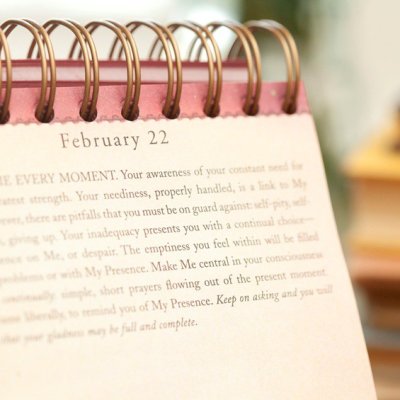 February 22
E EVERY MOMENT. Your awareness of your constant need for
atest strength. Your neediness, properly handled, is a link to My
ever, there are pitfalls that you must be on guard against: self-pity, self-
, giving up. Your inadequacy presents you with a continual choice—
ence on Me, or despair. The emptiness you feel within will be filled
problems or with My Presence. Make Me central in your consciousness
continually: simple, short prayers flowing out of the present moment.
me liberally, to remind you of My Presence. Keep on asking and you will
that your gladness may be full and complete.